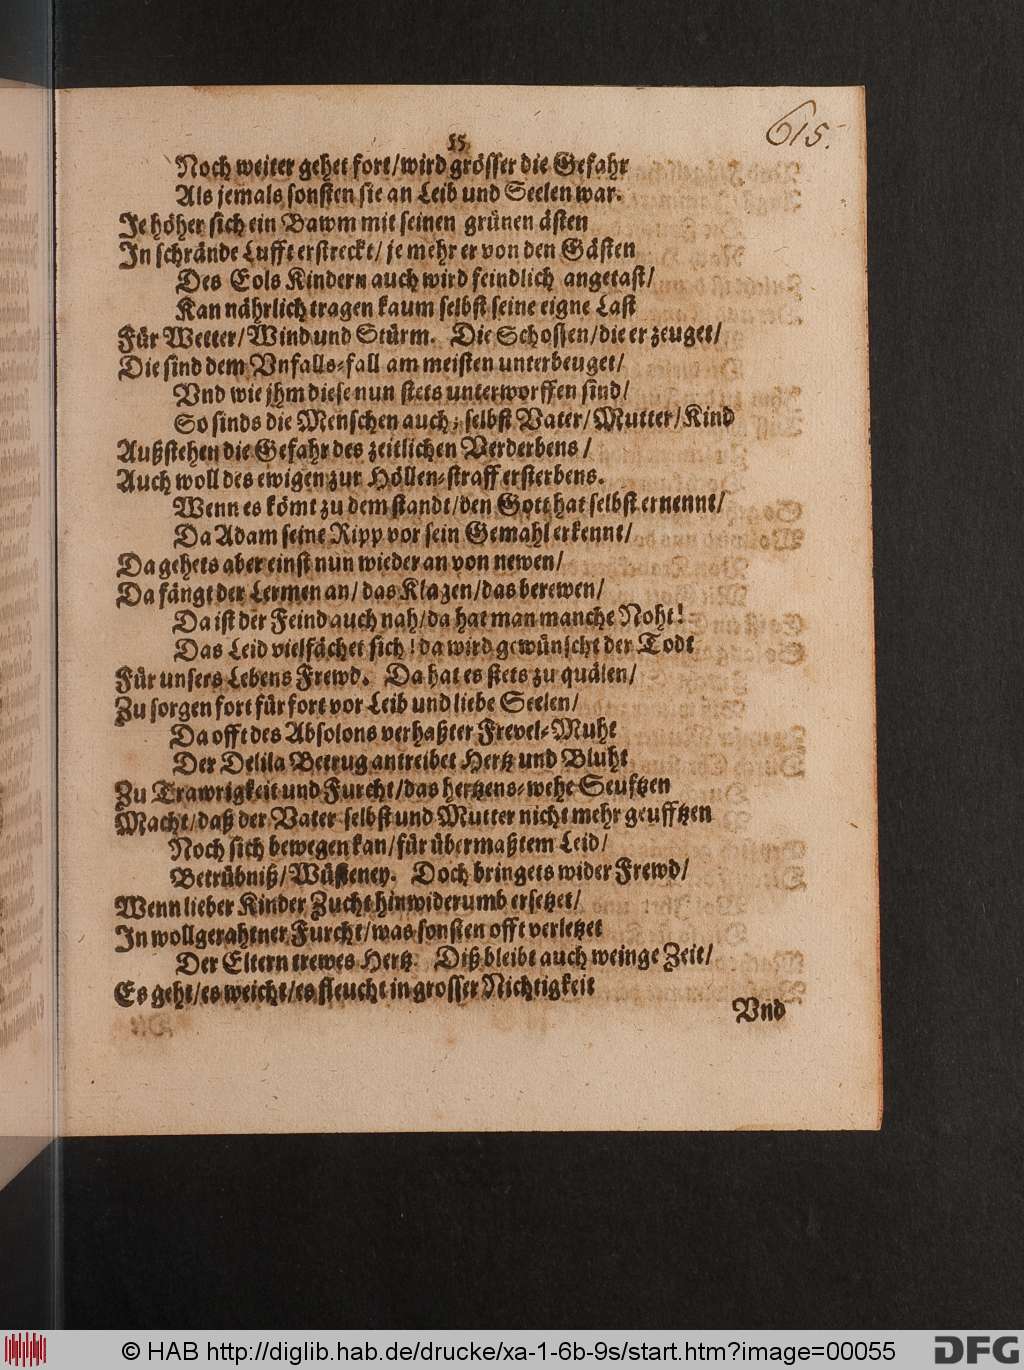 615.
55.
Noch weiter gehet fort/wird grösser die Gefahr
Als jemals sonsten sie an Leib und Seelen war.
Je höher sich ein Bawm mit seinen grünen ästen
In schrände Lufft erstreckt/ je mehr er von den Gästen
Des Eols Kindern auch wird feindlich angetast/
Kan nährlich tragen kaum selbst seine eigne Last
Für Wetter/Wind und Stürm. Die Schossen/die er zeuget/
Die sind dem Vnfalls-fall am meisten unterbeuget/
Vnd wie jhm diese nun stets unterworffen sind/
So sinds die Menschen auch; selbst Vater/Mutter/Kind
Außstehen die Gefahr des zeitlichen Verderbens/
Auch woll des ewigen zur Höllen-straff ersterbens.
Wenn es kömt zu dem standt/den Gott hat selbst ernennt/
Da Adam seine Ripp vor sein Gemahl erkennt/
Da gehets aber einst nun wieder an von newen/
Da fängt der Lermen an/das Klagen/das berewen/
Da ist der Feind auch nah/da hat man manche Noht!
Das Leid vielfächet sich! da wird gewünscht der Todt
Für unsers Lebens Frewd. Da hat es stets zu quälen/
Zu sorgen fort für fort vor Leib und liebe Seelen/
Da offt des Absolons verhaßter Frevel-Muht
Der Delila Betrug antreibet Hertz und Bluht
Zu Trawrigkeit und Furcht/das hertzens-wehe Seufftzen
Macht/daß der Vater selbst und Mutter nicht mehr geufftzen
Noch sich bewegen kan/für übermaßtem Leid/
Betrübniß/Wüsteney. Doch bringets wider Frewd/
Wenn lieber Kinder Zucht hinwiderumb ersetzet/
In wollgerahtner Furcht/was sonsten offt verletzet
Der Eltern trewes Hertz. Diß bleibt auch weinge Zeit/
Es geht/es weicht/es fleucht in grosser Nichtigkeit
Vnd
© HAB http://diglib.hab.de/drucke/xa-1-6b-9s/start.htm?image=00055
DFG